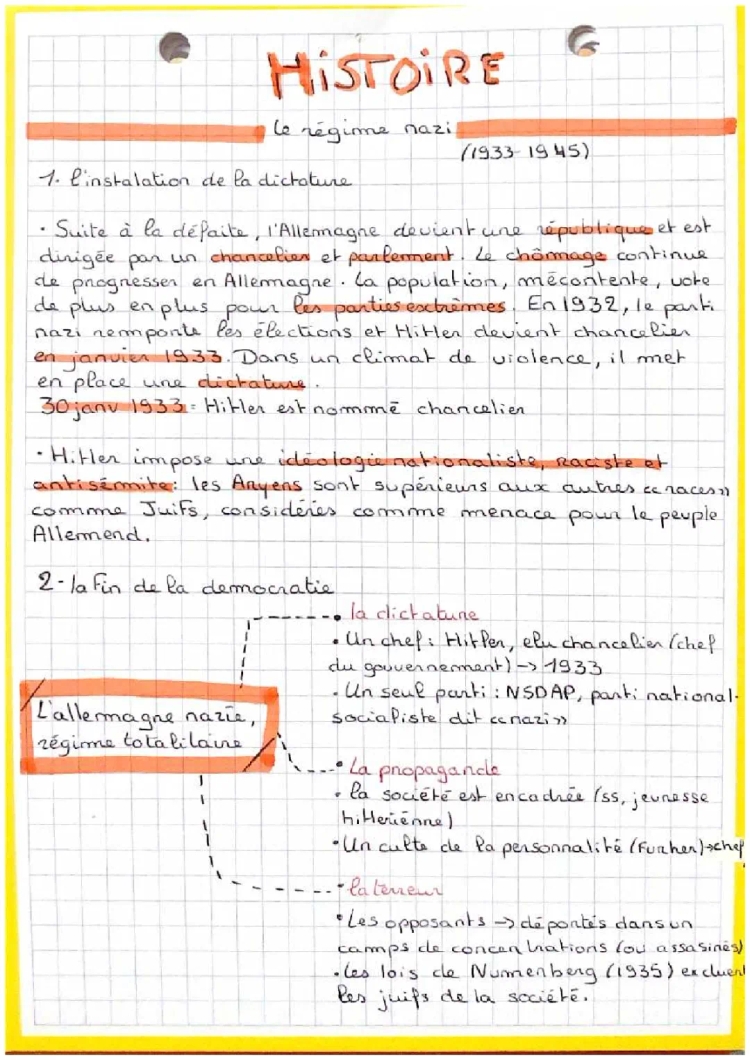 HiSTOiRE
Le régime nazi
(1933-1945)
1. l'instalation de la dictature
• Suite à la défaite, l'Allemagne devient une république et est
dirigée par un chancelier et parlement. Le chômage continue
de progresser en Allemagne. La population, mécontente, vote
de plus en plus pour les parties esctrèmes. En 1932, le parti
nazi remporte les élections et Hitler devient chancelier
en janvier 1933. Dans un climat de violence, il met
en place une dictature.
30 janv 1933 = Hitler est nommé chancelier
• Hitler impose une idéologie nationaliste, raciste et
antisémite: les Aryens sont supérieurs aux autres «races»
comme Juifs, considérés comme menace pour le peuple
Allemend.
2- la fin de la democratie
• la dictature
• Un chef: Hitler, elu chancelier (chef
du gouvernement) -> 1933
• Un seul parti : NSDAP, parti national-
socialiste dit «nazi»
L'allemagne nazie,
régime totalitaire
• La propagande
• la société est encadrée (ss, jeunesse
hitleriénne)
• Un culte de la personnalité (Furher)->chef
• la terreur
• Les opposants -> déportés dans un
camps de concentrations (ou assasinés)
• les lois de Nuremberg (1935) excluent
les juifs de la société.